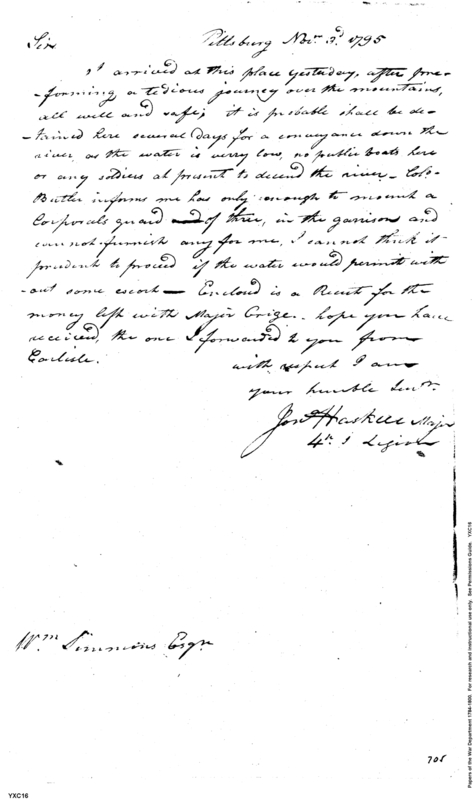 Sir Pittsburg Novr. 3d. 1795
I arrived at this place yesterday, after pre-
forming a tedious journey over the mountains,
all well and safe; it is probable shall be de-
tained here several days for a conveyance down the
river, as the water is verry low, no public boats here
or any soldiers at present to decend the river - Colo.
Butler informs me has only enough to mount a
Corporals guard of three, in the garrison and
cannot furnish any for me, I cannot think it
prudent to proceed if the water would permit with
out some escort - Enclosd is a Receit for the
money left with Major Crige. hope you have
received, the one I forwarded to you from
Carlisle.
with respect I am
your humble Servt.
Jona. Haskell Major
4th. S Legion
Wm Simmons Esqr
705
YXC16
Papers of the War Department 1784-1800. For research and instructional use only. See Permissions Guide. YXC16